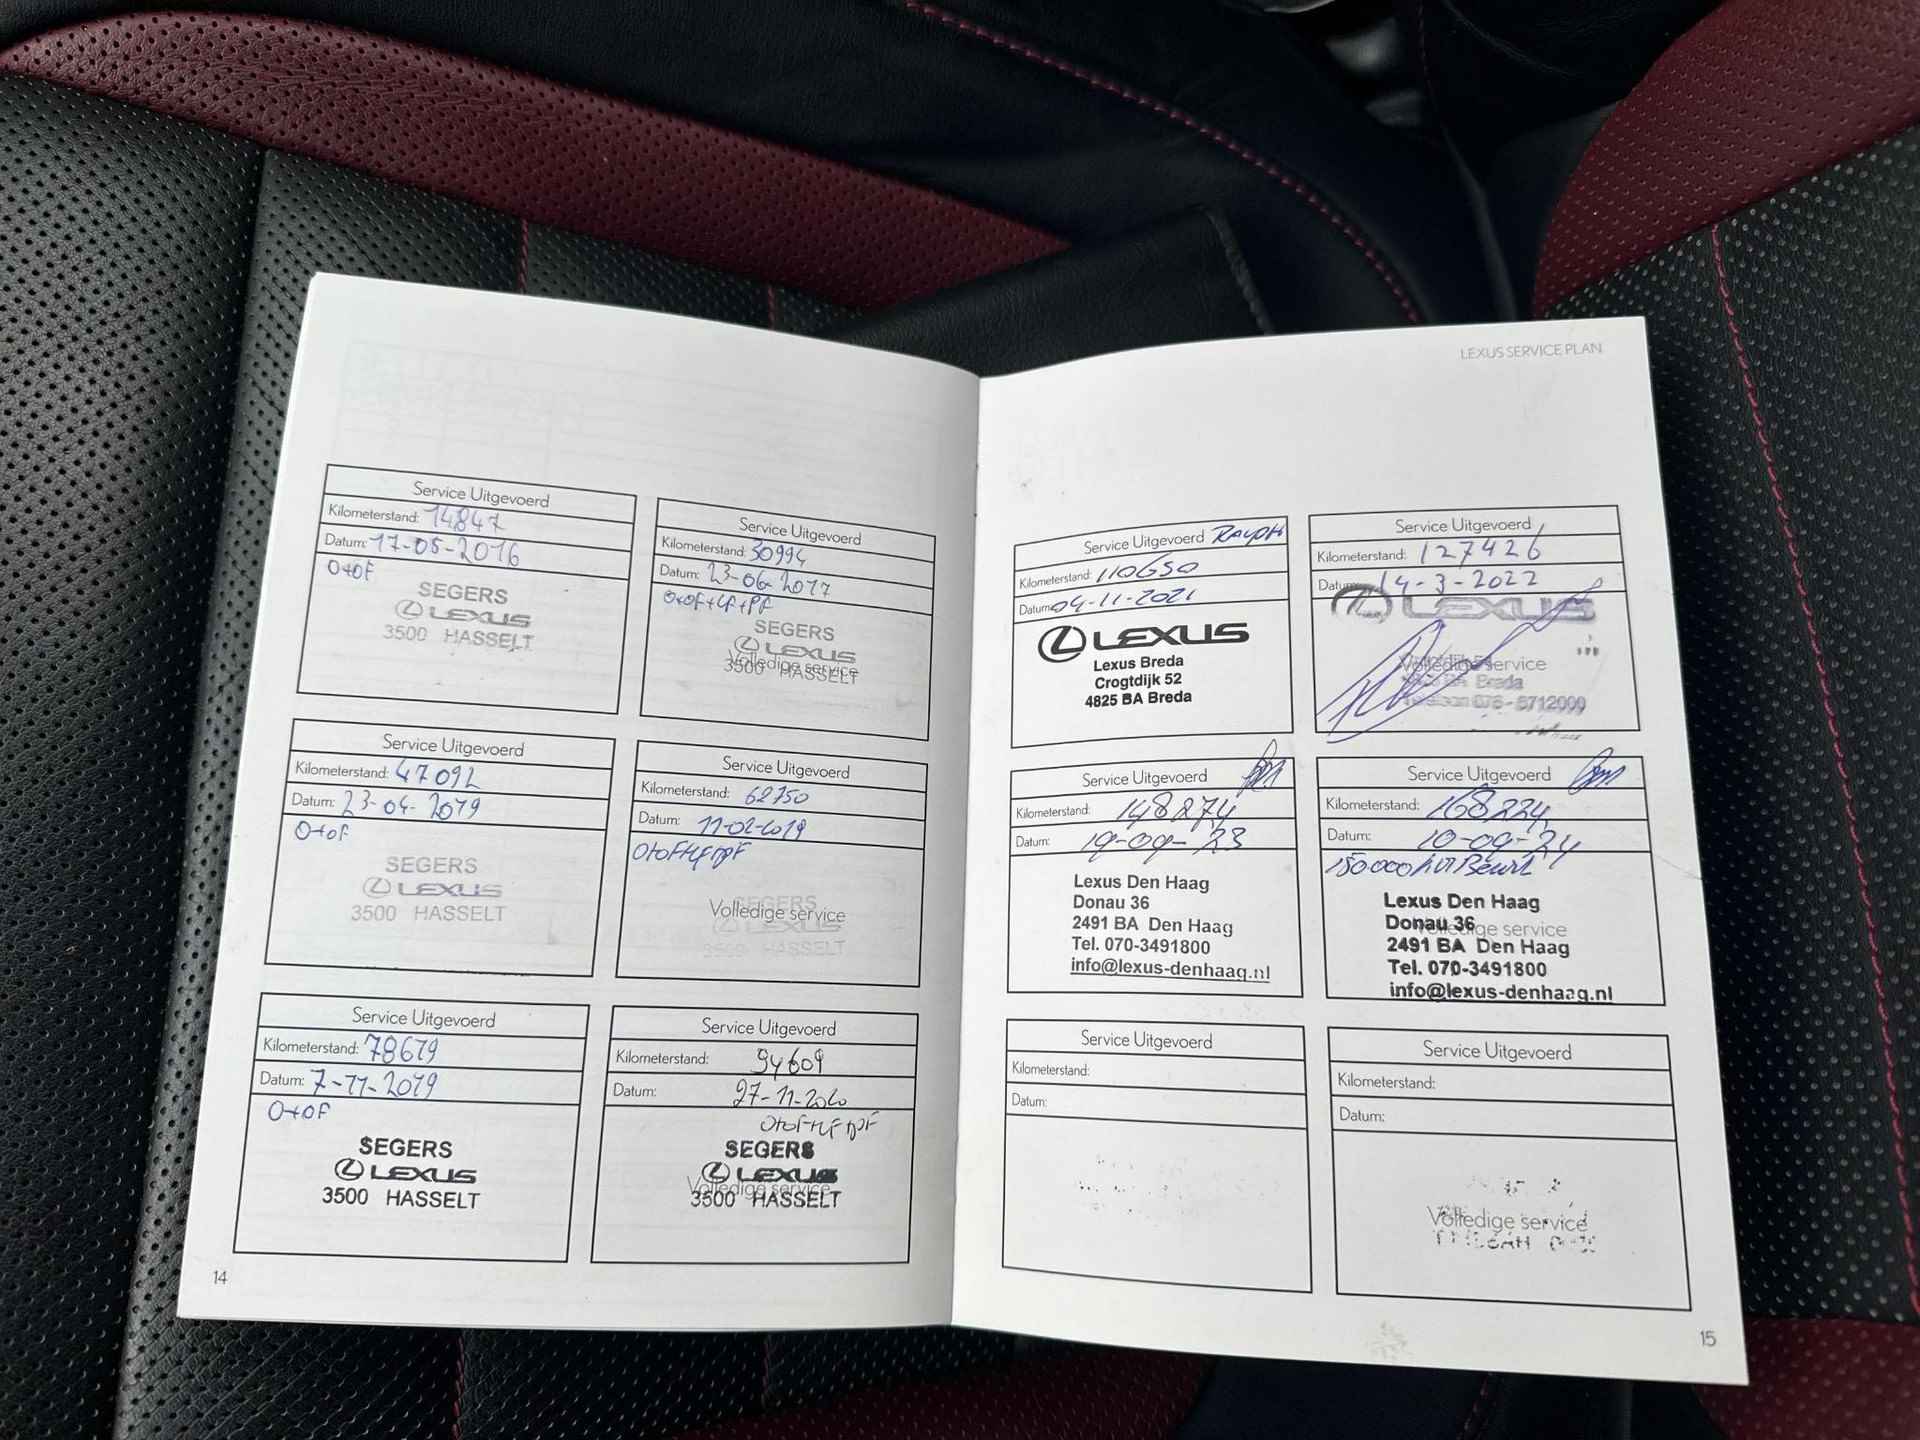 Service Uitgevoerd
Kilometerstand: 14847
Datum: 17-05-2016
O+OF
SEGERS
LEXUS
3500 HASSELT
Service Uitgevoerd
Kilometerstand: 30994
Datum: 23-06-2017
O+OF+LF+PF
SEGERS
LEXUS
Volledige service
3500 HASSELT
Service Uitgevoerd
Kilometerstand: 47092
Datum: 23-04-2019
O+OF
SEGERS
LEXUS
3500 HASSELT
Service Uitgevoerd
Kilometerstand: 62750
Datum: 11-02-2019
SEGERS
Volledige service
LEXUS
3500 HASSELT
Service Uitgevoerd
Kilometerstand: 78679
Datum: 7-11-2019
O+OF
SEGERS
LEXUS
3500 HASSELT
Service Uitgevoerd
Kilometerstand: 94609
Datum: 27-11-2020
SEGERS
LEXUS
Volledige service
3500 HASSELT
14
LEXUS SERVICE PLAN
Service Uitgevoerd RALPH
Kilometerstand: 110650
Datum: 04-11-2021
LEXUS
Lexus Breda
Crogtdijk 52
4825 BA Breda
Service Uitgevoerd
Kilometerstand: 127426
Datum: 14-3-2022
LEXUS
Volledige service
BA Breda
Service Uitgevoerd
Kilometerstand: 148274
Datum: 19-09-23
Lexus Den Haag
Donau 36
2491 BA Den Haag
Tel. 070-3491800
info@lexus-denhaag.nl
Service Uitgevoerd
Kilometerstand: 168224
Datum: 10-09-24
Lexus Den Haag
Donau 36
Volledige service
2491 BA Den Haag
Tel. 070-3491800
info@lexus-denhaag.nl
Service Uitgevoerd
Kilometerstand:
Datum:
Service Uitgevoerd
Kilometerstand:
Datum:
Volledige service
15